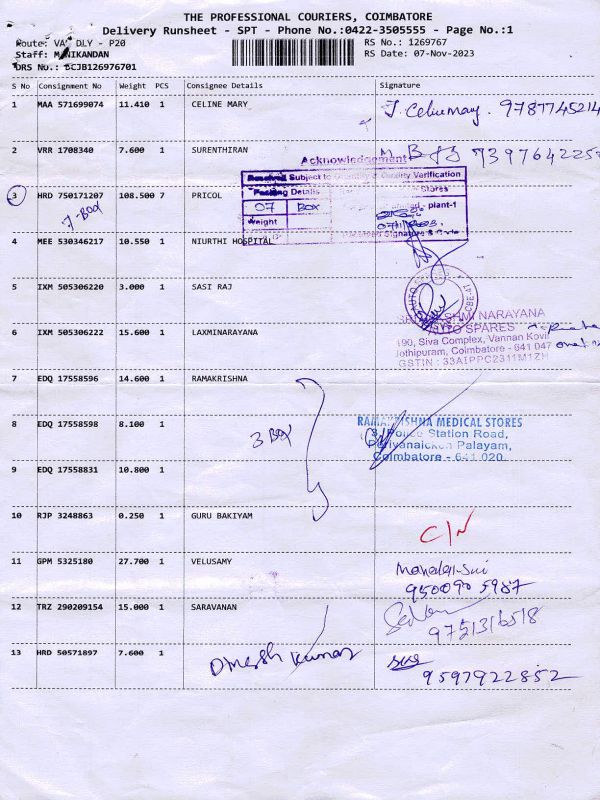 THE PROFESSIONAL COURIERS, COIMBATORE
Delivery Runsheet - SPT - Phone No.:0422-3505555 - Page No.:1
Route: VA DLY - P20
RS No.: 1269767
Staff: MANIKANDAN
RS Date: 07-Nov-2023
DRS No.: BCJB126976701
S No Consignment No Weight PCS Consignee Details Signature
1 MAA 571699074 11.410 1 CELINE MARY
J. Celinemary. 9787745214
2 VRR 1708340 7.600 1 SURENTHIRAN
7397642258
Acknowledgement
Received Subject to Quality Verification
Packing Details Stores
07 BOX plant-1
Weight
Signature & Code
3 HRD 750171207 108.500 7 PRICOL
7-BOX
4 MEE 530346217 10.550 1 NIURTHI HOSPITAL
5 IXM 505306220 3.000 1 SASI RAJ
6 IXM 505306222 15.600 1 LAXMINARAYANA
LAKSHMI NARAYANA
AUTO SPARES
190, Siva Complex, Vannan Kovil
Jothipuram, Coimbatore - 641 047
GSTIN : 33AIPPC2311M1ZH
7 EDQ 17558596 14.600 1 RAMAKRISHNA
8 EDQ 17558598 8.100 1
3 BOX
RAMAKRISHNA MEDICAL STORES
Police Station Road,
Periyanaicken Palayam,
Coimbatore - 641 020.
9 EDQ 17558831 10.800 1
10 RJP 3248863 0.250 1 GURU BAKIYAM
C/N
11 GPM 5325180 27.700 1 VELUSAMY
9500905987
12 TRZ 290209154 15.000 1 SARAVANAN
9751316518
13 HRD 50571897 7.600 1
Dinesh kumar
9597922852